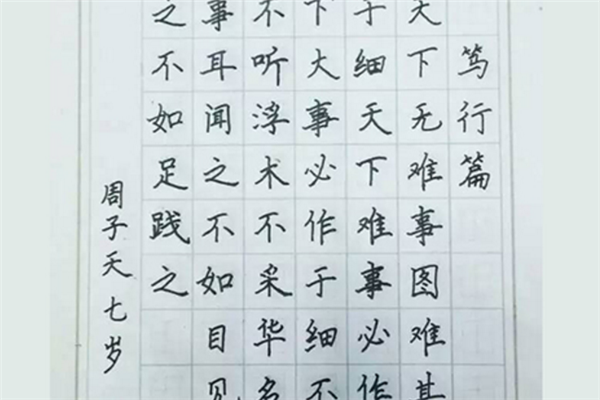 笃行篇
天下无难事图难其
于细天下难事必作
下大事必作于细不
不听浮术不采华名
事耳闻之不如目见
之不如足践之
周子天七岁